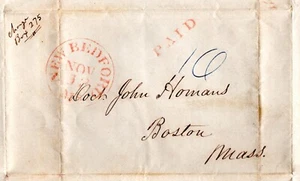 Charge
Box 275
NEW BEDFORD
NOV
PAID
10
Doct. John Homans
Boston
Mass.